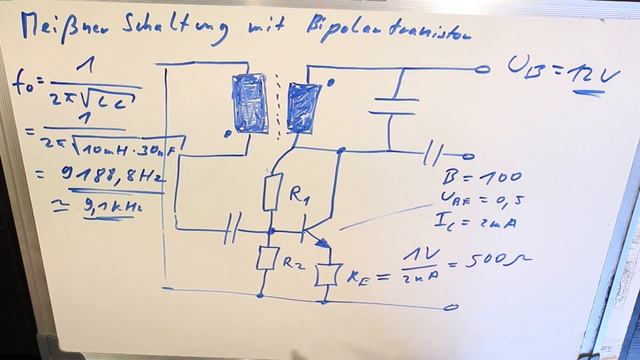 Meißner Schaltung mit Bipolartransistor
f₀ = 1 / 2π√LC
= 1 / 2π√10mH·30nF
= 9188,8Hz
≈ 9,1kHz
U_B = 12V
R₁
R₂
B = 100
U_BE = 0,5
I_C = 2mA
R_E = 1V / 2mA = 500Ω